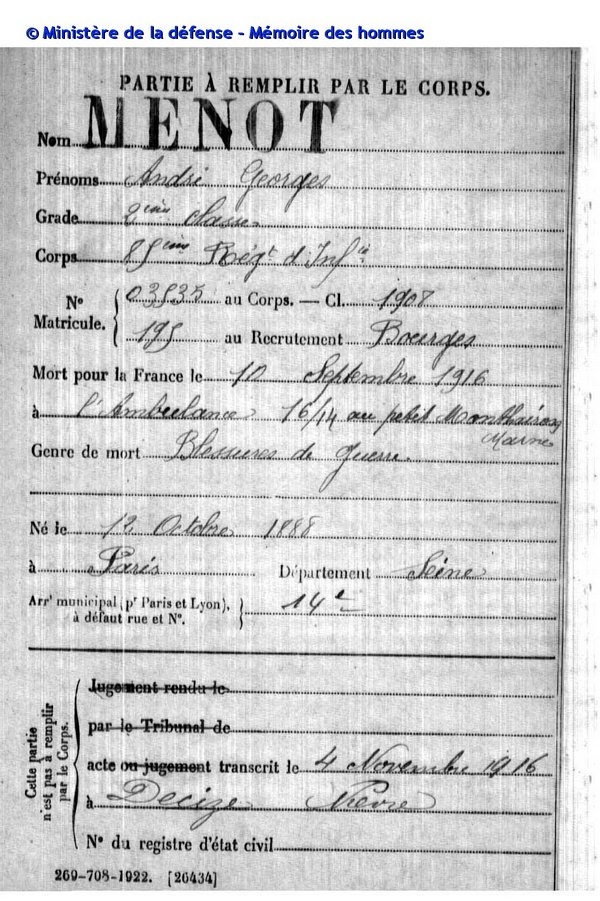 © Ministère de la défense - Mémoire des hommes
PARTIE À REMPLIR PAR LE CORPS.
Nom MENOT
Prénoms André Georges
Grade 2ème classe
Corps 85ème Régt d'Infie
N° Matricule. 03535 au Corps. — Cl. 1908
195 au Recrutement Bourges
Mort pour la France le 10 Septembre 1916
à l'Ambulance 16/14 au petit Monthairons
Marne
Genre de mort Blessures de guerre
Né le 12 Octobre 1888
à Paris Département Seine
Arrt municipal (pr Paris et Lyon), à défaut rue et N°. 14e
Cette partie n'est pas à remplir par le Corps.
Jugement rendu le
par le Tribunal de
acte ou jugement transcrit le 4 Novembre 1916
à Decize Nièvre
N° du registre d'état civil
269-708-1922. [26434]